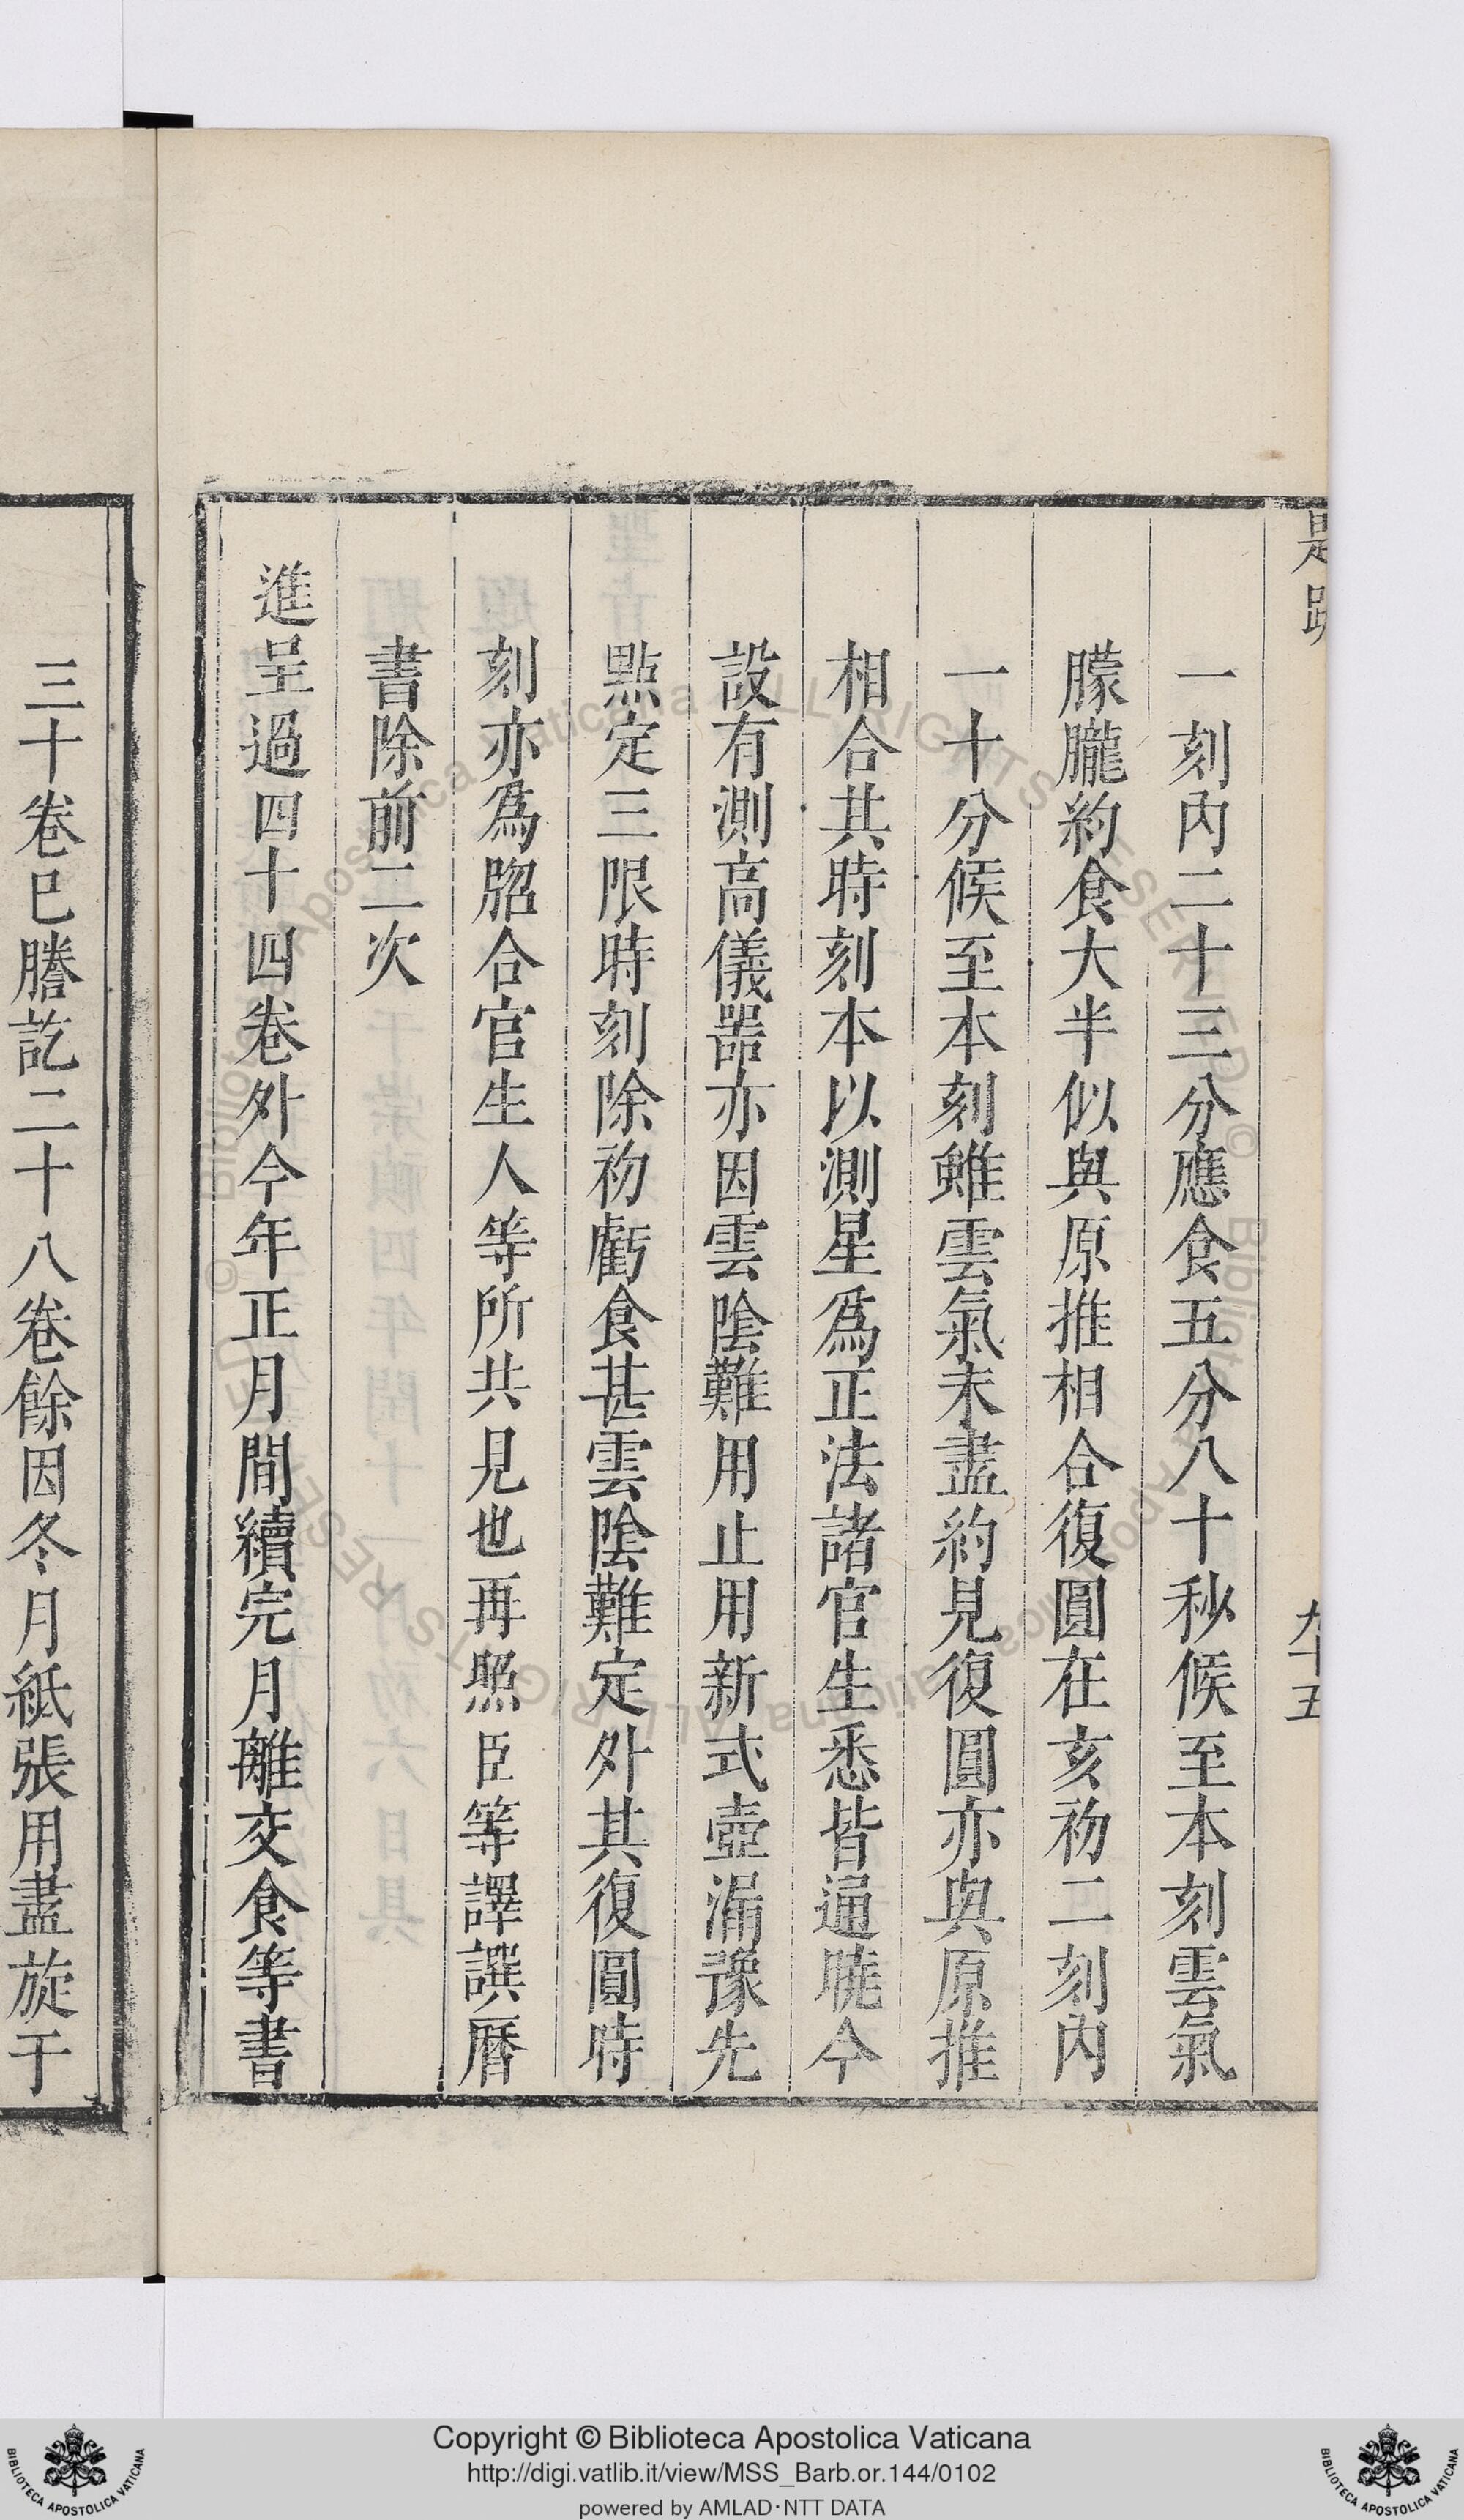 題䟽
九十五
一刻內二十三分應食五分八十秒候至本刻雲氣
朦朧約食大半似與原推相合復圓在亥初二刻內
一十分候至本刻雖雲氣未盡約見復圓亦與原推
相合其時刻本以測星爲正法諸官生悉皆通曉今
設有測高儀器亦因雲陰難用止用新式壺漏豫先
點定三限時刻除初虧食甚雲陰難定外其復圓時
刻亦爲脗合官生人等所共見也再照臣等譯譔曆
書除前二次
進呈過四十四卷外今年正月間續完月離交食等書
三十卷已謄訖二十八卷餘因冬月紙張用盡旋于
Copyright © Biblioteca Apostolica Vaticana
http://digi.vatlib.it/view/MSS_Barb.or.144/0102
powered by AMLAD·NTT DATA
BIBLIOTECA APOSTOLICA VATICANA
BIBLIOTECA APOSTOLICA VATICANA